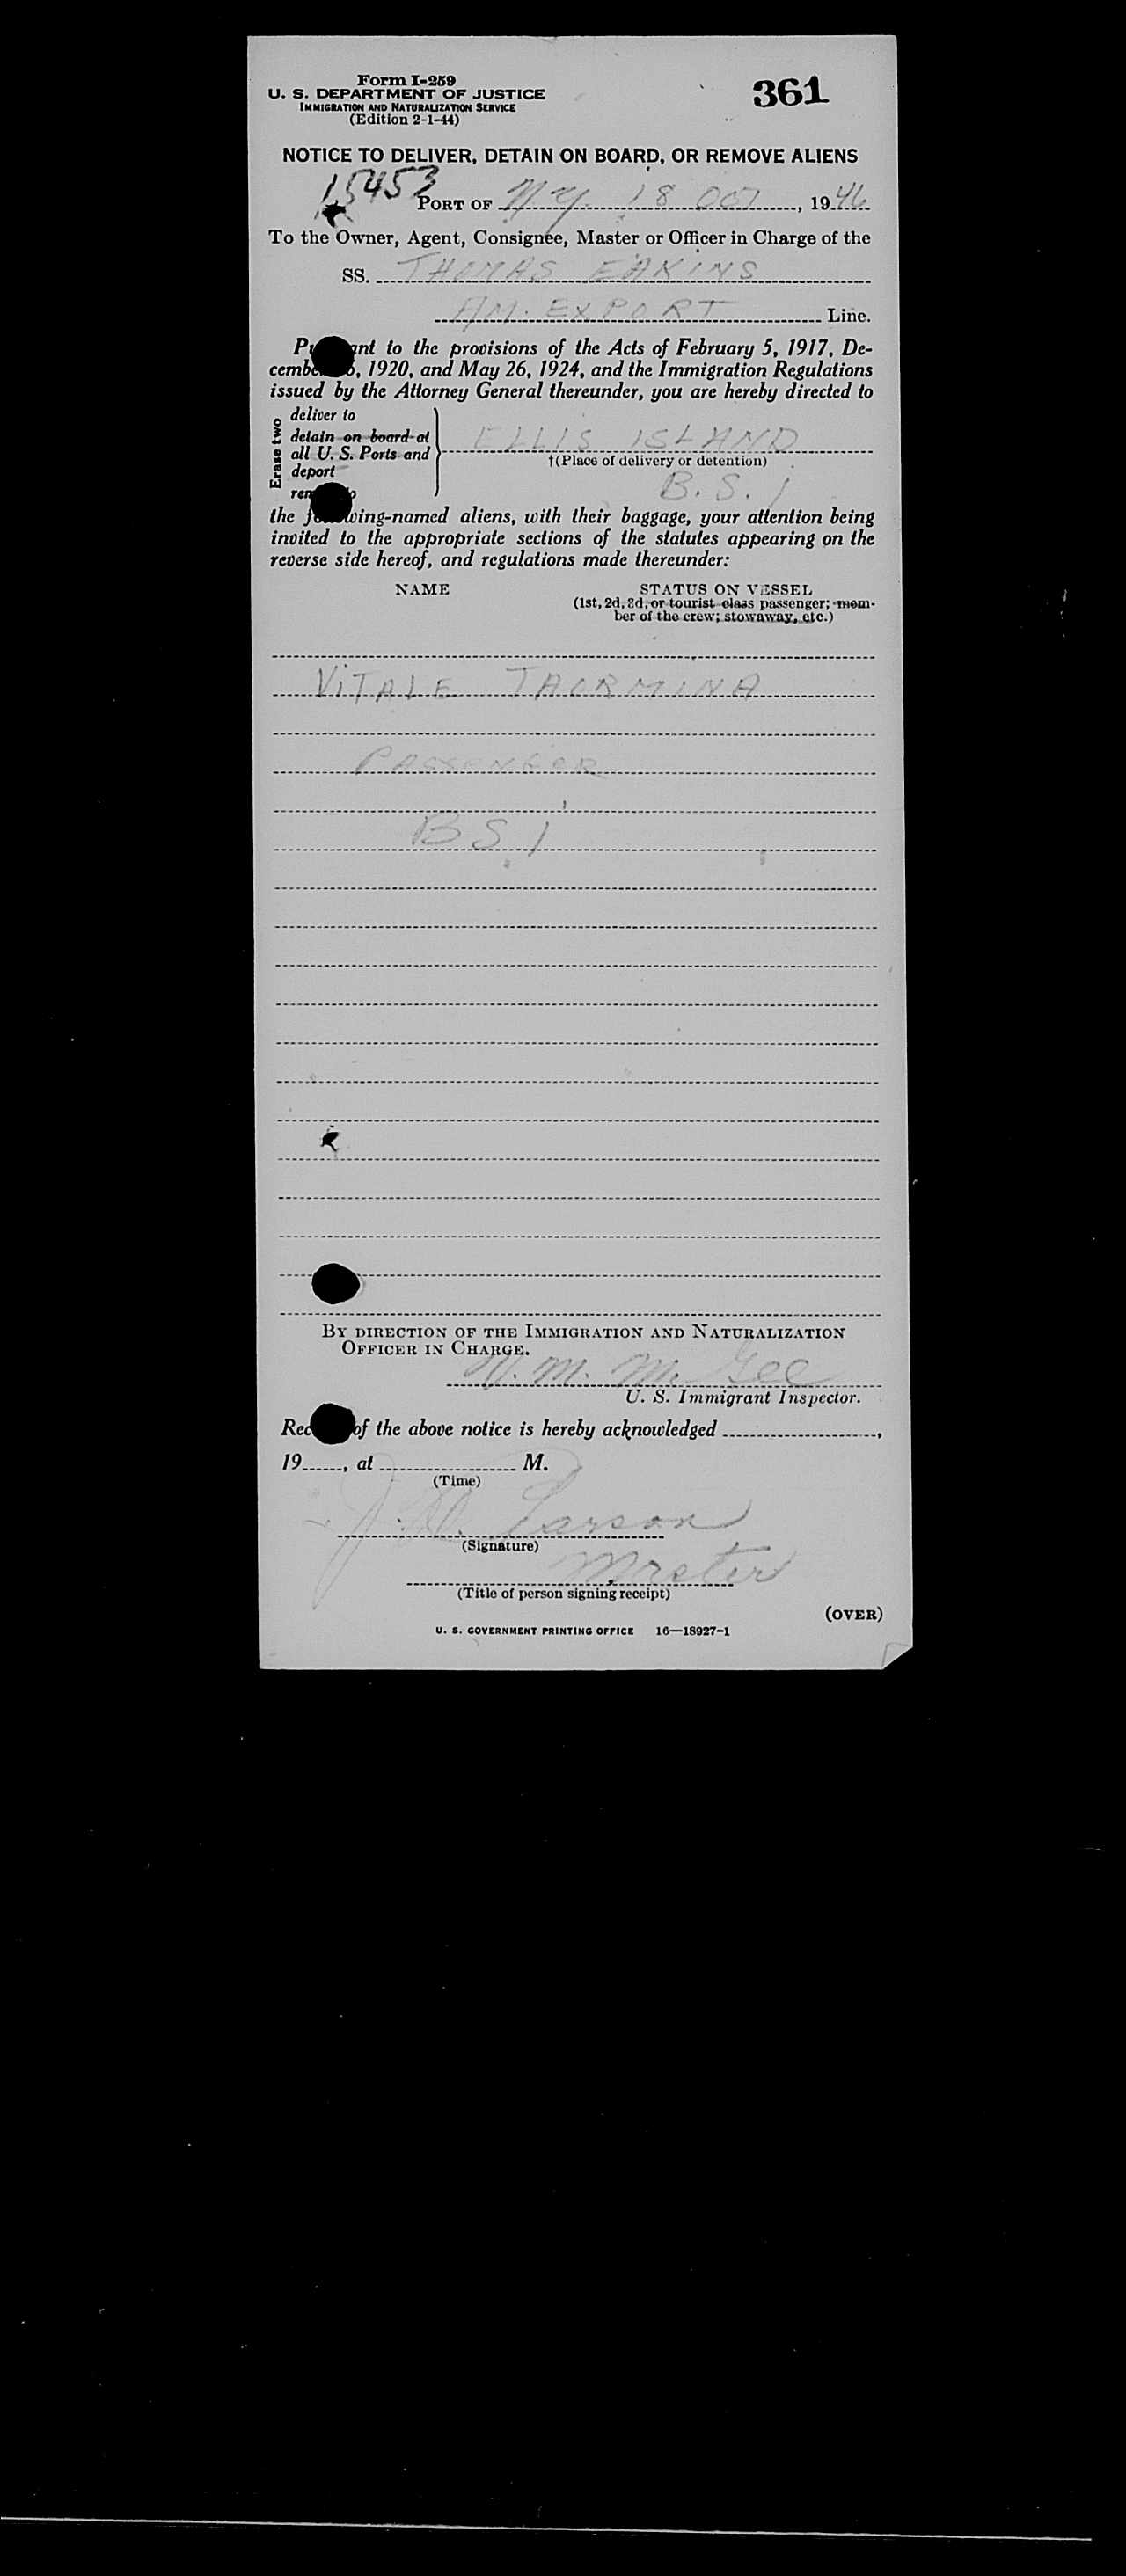 Form I-259
361
U. S. DEPARTMENT OF JUSTICE
IMMIGRATION AND NATURALIZATION SERVICE
(Edition 2-1-44)
NOTICE TO DELIVER, DETAIN ON BOARD, OR REMOVE ALIENS
15453
PORT OF N Y 18 OCT, 1946
To the Owner, Agent, Consignee, Master or Officer in Charge of the
SS. THOMAS EAKINS
AM. EXPORT Line.
Pu ant to the provisions of the Acts of February 5, 1917, De-
cembe 5, 1920, and May 26, 1924, and the Immigration Regulations
issued by the Attorney General thereunder, you are hereby directed to
Erase two
deliver to
detain on board at
all U. S. Ports and
deport
rem o
ELLIS ISLAND
†(Place of delivery or detention)
B. S. I
the fo wing-named aliens, with their baggage, your attention being
invited to the appropriate sections of the statutes appearing on the
reverse side hereof, and regulations made thereunder:
NAME STATUS ON VESSEL
(1st, 2d, 3d, or tourist class passenger; mem-
ber of the crew; stowaway, etc.)
VITALE TAORMINA
PASSENGER
B S I
BY DIRECTION OF THE IMMIGRATION AND NATURALIZATION
OFFICER IN CHARGE.
W. M. McGee
U. S. Immigrant Inspector.
Rec of the above notice is hereby acknowledged ,
19 , at M.
(Time)
Larson
(Signature)
Master
(Title of person signing receipt)
(OVER)
U. S. GOVERNMENT PRINTING OFFICE 16—18927-1